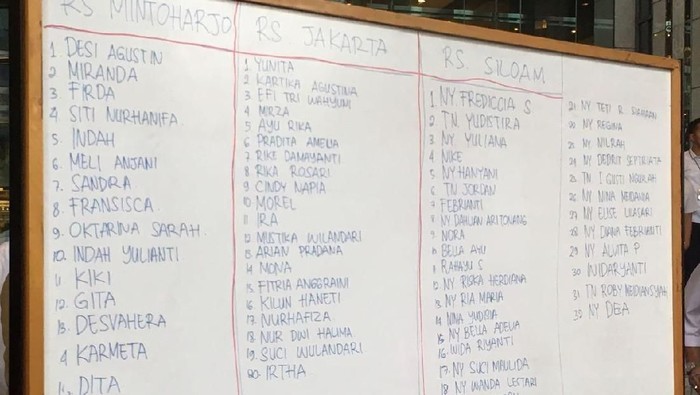 RS MINTOHARJO
1. DESI AGUSTIN
2. MIRANDA
3. FIRDA
4. SITI NURHANIFA
5. INDAH
6. MELI ANJANI
7. SANDRA
8. FRANSISCA
9. OKTARINA SARAH
10. INDAH YULIANTI
11 KIKI
12. GITA
13. DESVAHERA
4 KARMETA
DITA
RS JAKARTA
1. YUNITA
2. KARTIKA AGUSTINA
3. EFI TRI WAHYUNI
4. MIRZA
5. AYU RIKA
6. PRADITA AMELIA
7. RIKE DAMAYANTI
8. RIKA ROSARI
9. CINDY NAPIA
10. MOREL
11. IRA
12. MUSTIKA WILANDARI
13. ARIAN PRADANA
14 MONA
15. FITRIA ANGGRAINI
16. KILUN HANETI
17. NURHAFIZA
18. NUR DWI HALIMA
19. SUCI WULANDARI
20. IRTHA
RS. SILOAM
1 NY FREDICCIA S
2. TN YUDISTIRA
3. NY YULIANA
4. NIKE
5. NY HANYANI
6. TN JORDAN
7 FEBRIANTI
8. NY DAHLIAN ARITONANG
9. NORA
10. BELLA AYU
11. RAHAYU S
12. NY RISKA HERDIANA
13. NY RIA MARIA
14. NINA YUDISIA
15. NY BELLA ADELIA
16. WIDA RIYANTI
17. NY SUCI MAULIDA
18 NY WANDA LESTARI
NY TETI R
NY REGINA
NY NILRAH
NY
TN I GUSTI NGURAH
NY NINA MEIDANIA
NY ELISE LILASARI
28 NY DIANA FEBRIANTI
29 NY ALVITA P
30 WIDARYANTI
31 TN ROBY MEIDIANSYAH
32 NY DEA